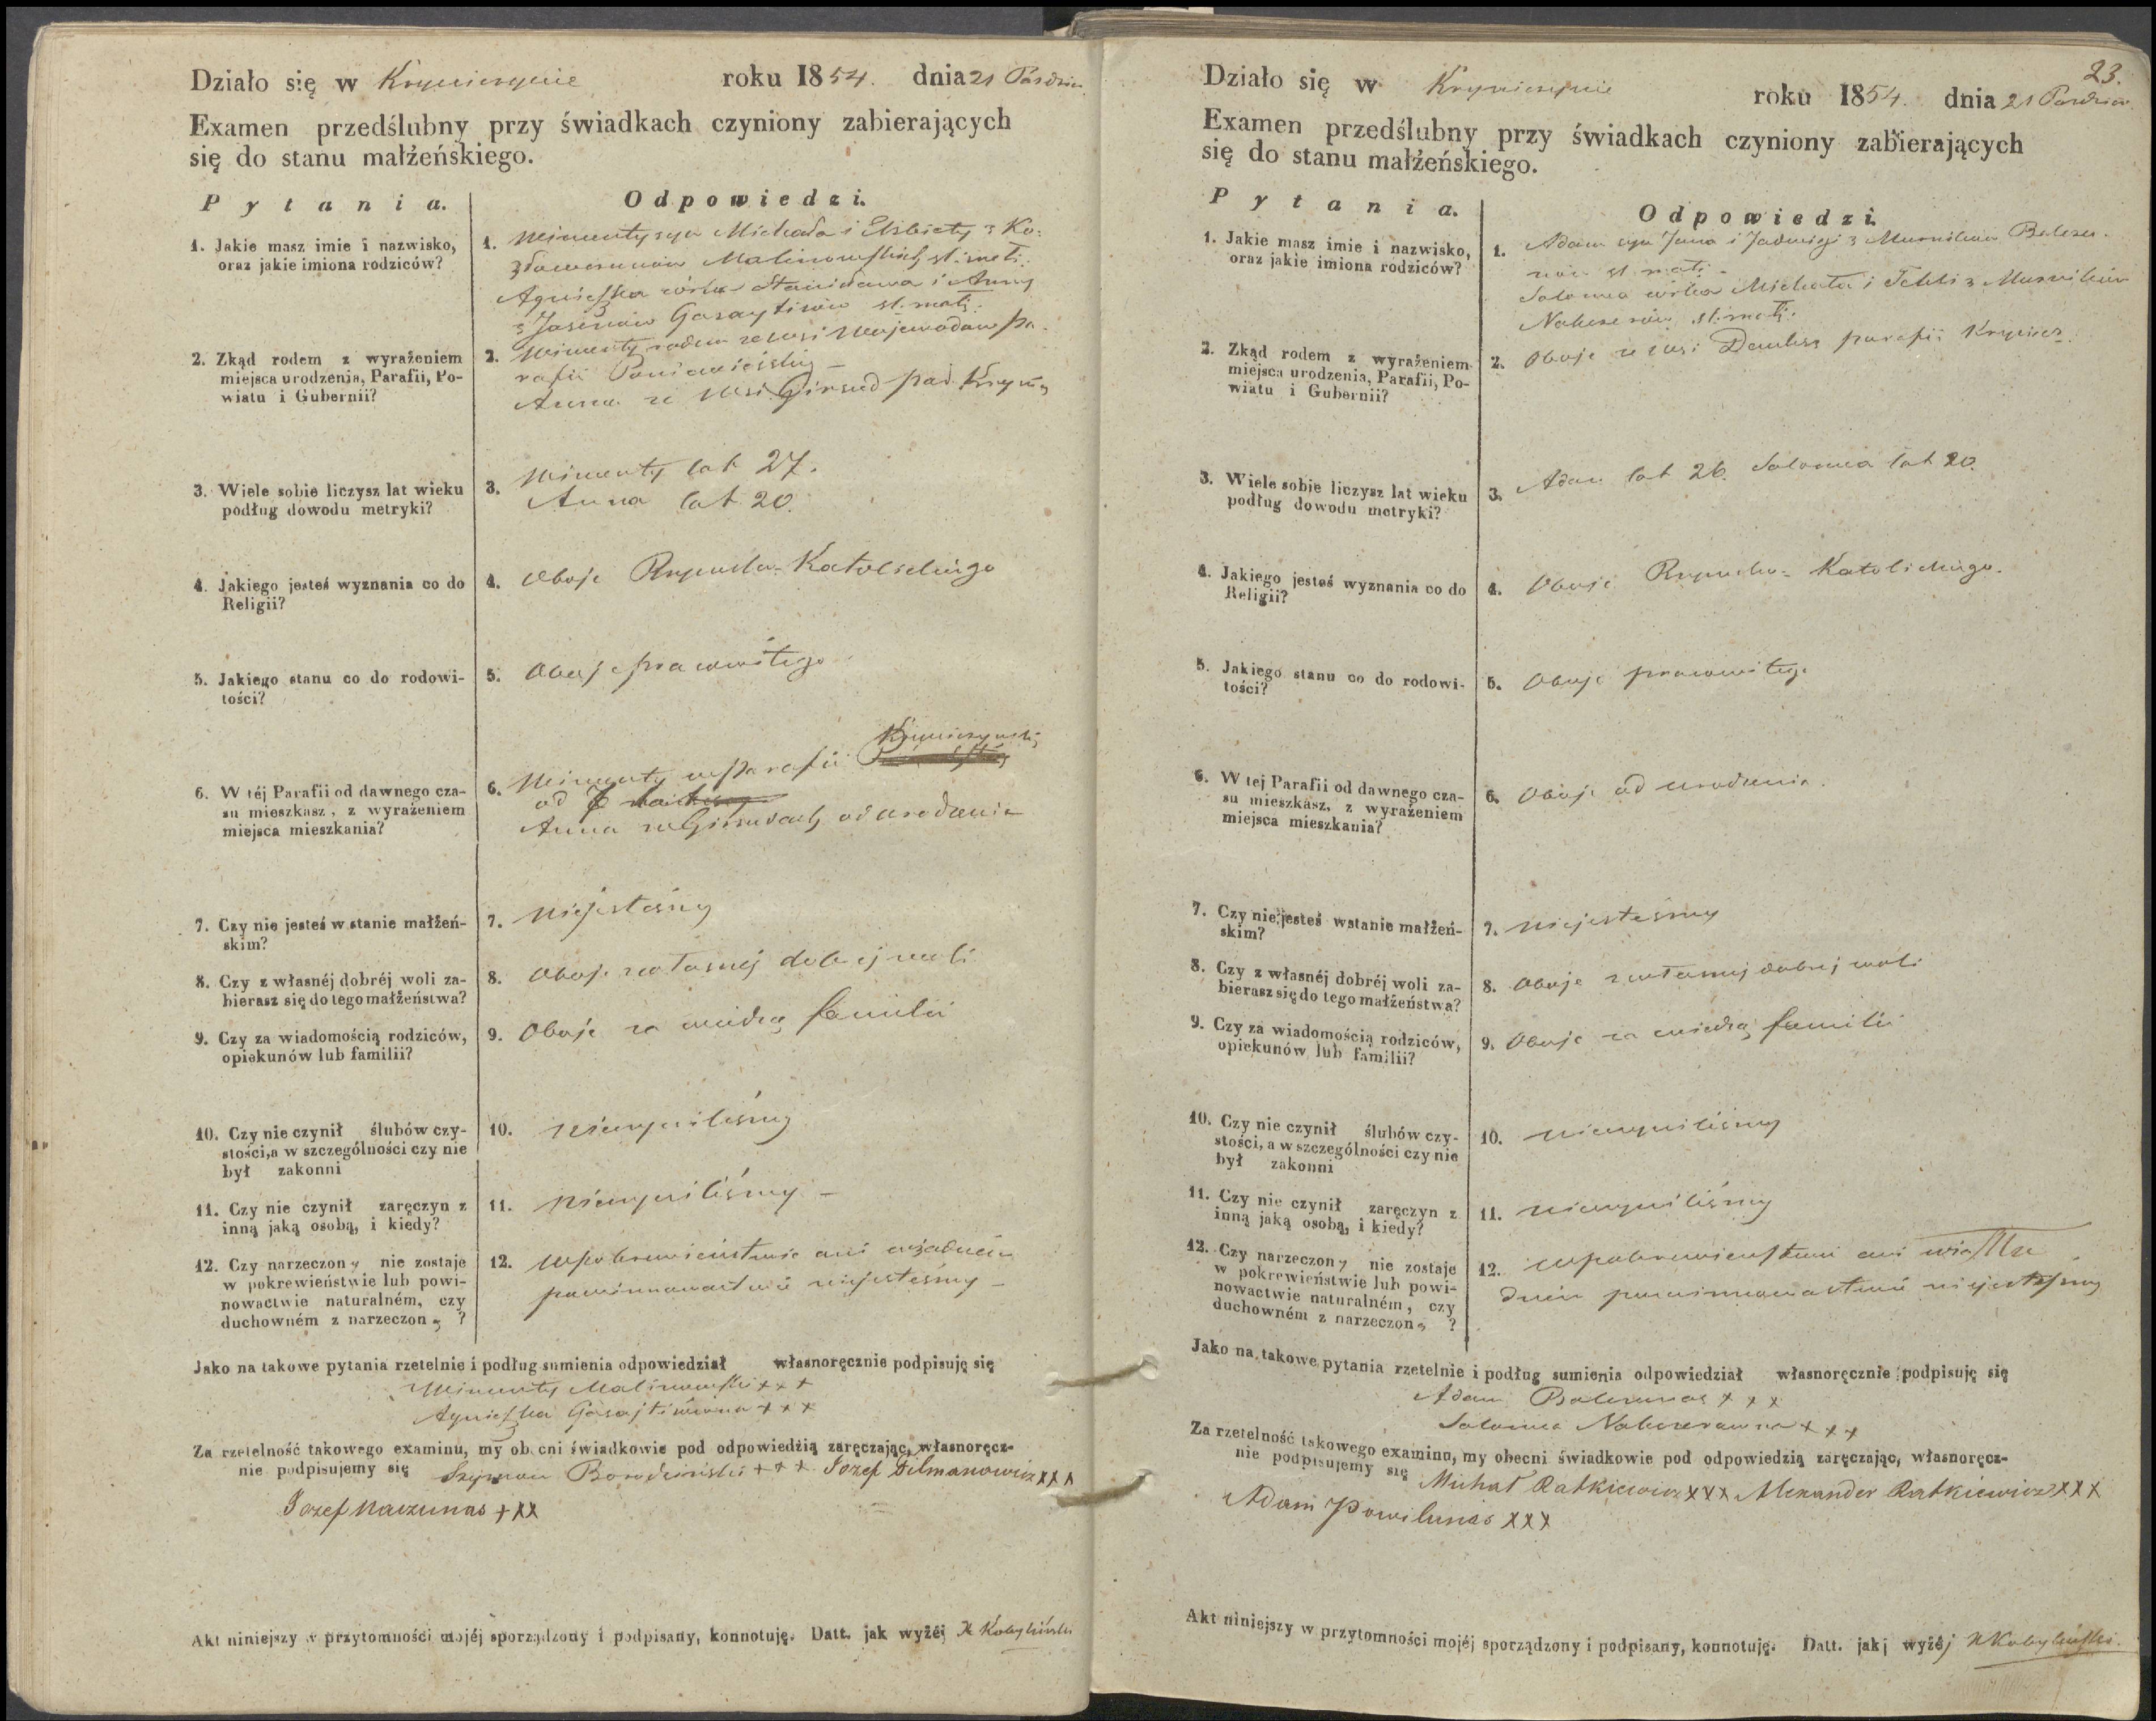 Działo się w Kryniczynie roku 1854. dnia 21 Paździer.
Examen przedślubny przy świadkach czyniony zabierających
się do stanu małżeńskiego.
Pytania. Odpowiedzi.
1. Jakie masz imie i nazwisko,
oraz jakie imiona rodziców?
1. Wincenty syn Michała i Elżbiety z
Malinowskich sl. małż.
Agnieszka córka Stanisława i Anny
z sl. małż.
2. Zkąd rodem z wyrażeniem
miejsca urodzenia, Parafii, Po-
wiatu i Gubernii?
2. Wincenty rodem ze wsi pa-
rafii
Anna ze wsi Girsud par.
3. Wiele sobie liczysz lat wieku
podług dowodu metryki?
3. Wincenty lat 27.
Anna lat 20.
4. Jakiego jesteś wyznania co do
Religii?
4. Oboje Rzymsko-Katolickiego
5. Jakiego stanu co do rodowi-
tości?
5. Oboje pracowitego
6. W téj Parafii od dawnego cza-
su mieszkasz, z wyrażeniem
miejsca mieszkania?
6. Wincenty w parafii
od
Anna w Girsudach od urodzenia
7. Czy nie jesteś w stanie małżeń-
skim?
7. niejesteśmy
8. Czy z własnéj dobréj woli za-
bierasz się do tego małżeństwa?
8. Oboje z własnej dobrej woli
9. Czy za wiadomością rodziców,
opiekunów lub familii?
9. Oboje za wiedzą familii
10. Czy nie czynił ślubów czy-
stości, a w szczególności czy nie
był zakonni
10. nieczyniliśmy
11. Czy nie czynił zaręczyn z
inną jaką osobą, i kiedy?
11. nieczyniliśmy –
12. Czy narzeczony nie zostaje
w pokrewieństwie lub powi-
nowactwie naturalném, czy
duchowném z narzeczoną ?
12. w pokrewieństwie ani w żadném
powinnowactwie niejesteśmy –
Jako na takowe pytania rzetelnie i podług sumienia odpowiedział własnoręcznie podpisuję się
Wincenty Malinowski + + +
Agnieszka + + +
Za rzetelność takowego examinu, my obecni świadkowie pod odpowiedzią zaręczając, własnoręcz-
nie podpisujemy się Szymon + + + Jozef Dilmanowicz x x x
Jozef Naczunas + x x
Akt niniejszy w przytomności mojéj sporządzony i podpisany, konnotuję. Datt. jak wyżéj X Kobyliński
23.
Działo się w Kryniczynie roku 1854. dnia 21 Paździer.
Examen przedślubny przy świadkach czyniony zabierających
się do stanu małżeńskiego.
Pytania. Odpowiedzi.
1. Jakie masz imie i nazwisko,
oraz jakie imiona rodziców?
1. Adam syn Jana i Jadwigi z
sl. małż.
Salomea córka Michała i Tekli z
sl. małż.
2. Zkąd rodem z wyrażeniem
miejsca urodzenia, Parafii, Po-
wiatu i Gubernii?
2. Oboje ze wsi parafii
3. Wiele sobie liczysz lat wieku
podług dowodu metryki?
3. Adam lat 26. Salomea lat 20.
4. Jakiego jesteś wyznania co do
Religii?
4. Oboje Rzymsko-Katolickiego.
5. Jakiego stanu co do rodowi-
tości?
5. Oboje pracowitego
6. W tej Parafii od dawnego cza-
su mieszkasz, z wyrażeniem
miejsca mieszkania?
6. Oboje od urodzenia.
7. Czy nie jesteś wstanie małżeń-
skim?
7. niejesteśmy
8. Czy z własnéj dobréj woli za-
bierasz się do tego małżeństwa?
8. Oboje z własnej dobrej woli
9. Czy za wiadomością rodziców,
opiekunów lub familii?
9. Oboje za wiedzą familii
10. Czy nie czynił ślubów czy-
stości, a w szczególności czy nie
był zakonni
10. nieczyniliśmy
11. Czy nie czynił zaręczyn z
inną jaką osobą, i kiedy?
11. nieczyniliśmy
12. Czy narzeczony nie zostaje
w pokrewieństwie lub powi-
nowactwie naturalném, czy
duchowném z narzeczoną ?
12. w pokrewieństwie ani
powinnowactwie niejesteśmy
Jako na takowe pytania rzetelnie i podług sumienia odpowiedział własnoręcznie podpisuję się
Adam Balczunas x x x
Salomea x x x
Za rzetelność takowego examinu, my obecni świadkowie pod odpowiedzią zaręczając, własnoręcz-
nie podpisujemy się Michał Ratkiewicz x x x Alexander Ratkiewicz x x x
Adam Powilunas x x x
Akt niniejszy w przytomności mojéj sporządzony i podpisany, konnotuję. Datt. jakj wyżéj X Kobyliński.